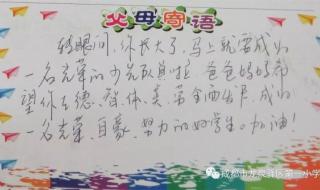 父母寄语
转眼间,你长大了,马上就要成为
一名光荣的少先队员啦,爸爸妈妈希
望你在德、智、体、美、劳全面出彩,成为
一名光荣、自豪、努力的好学生。加油!
成都市龙泉驿区第一小学